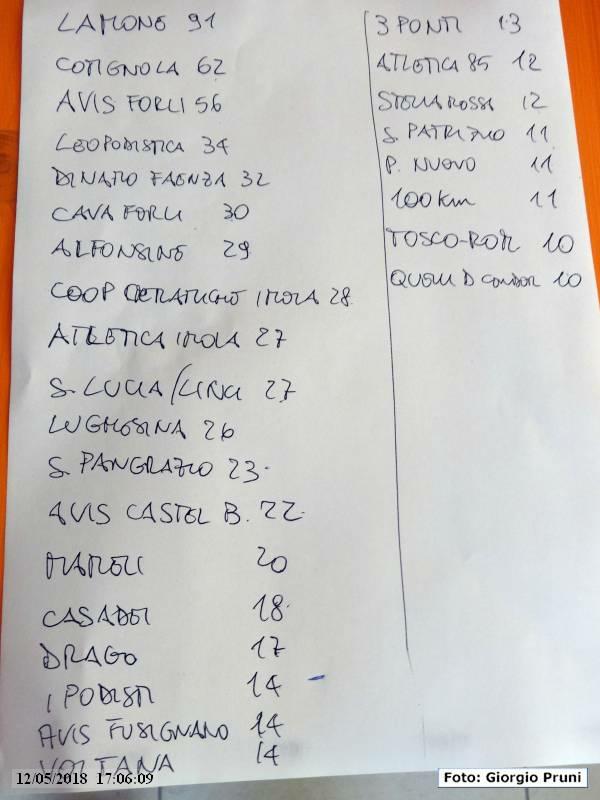 LAMONE 91
COTIGNOLA 62
AVIS FORLI 56
LEOPODISTICA 34
DINAMO FAENZA 32
CAVA FORLI 30
ALFONSINE 29
COOP CERAMICHE IMOLA 28
ATLETICA IMOLA 27
S. LUCIA / LINCI 27
LUGHESINA 26
S. PANCRAZIO 23.
AVIS CASTEL B. 22.
MAMELI 20
CASADEI 18.
DRAGO 17
I PODISTI 14
AVIS FUSIGNANO 14
VOLTANA 14
3 PONTI 13
ATLETICA 85 12
STELLA ROSSA 12
S. PATRIZIO 11
P. NUOVO 11
100 Km 11
TOSCO-ROM 10
QUELLI D 10
12/05/2018 17:06:09
Foto: Giorgio Pruni